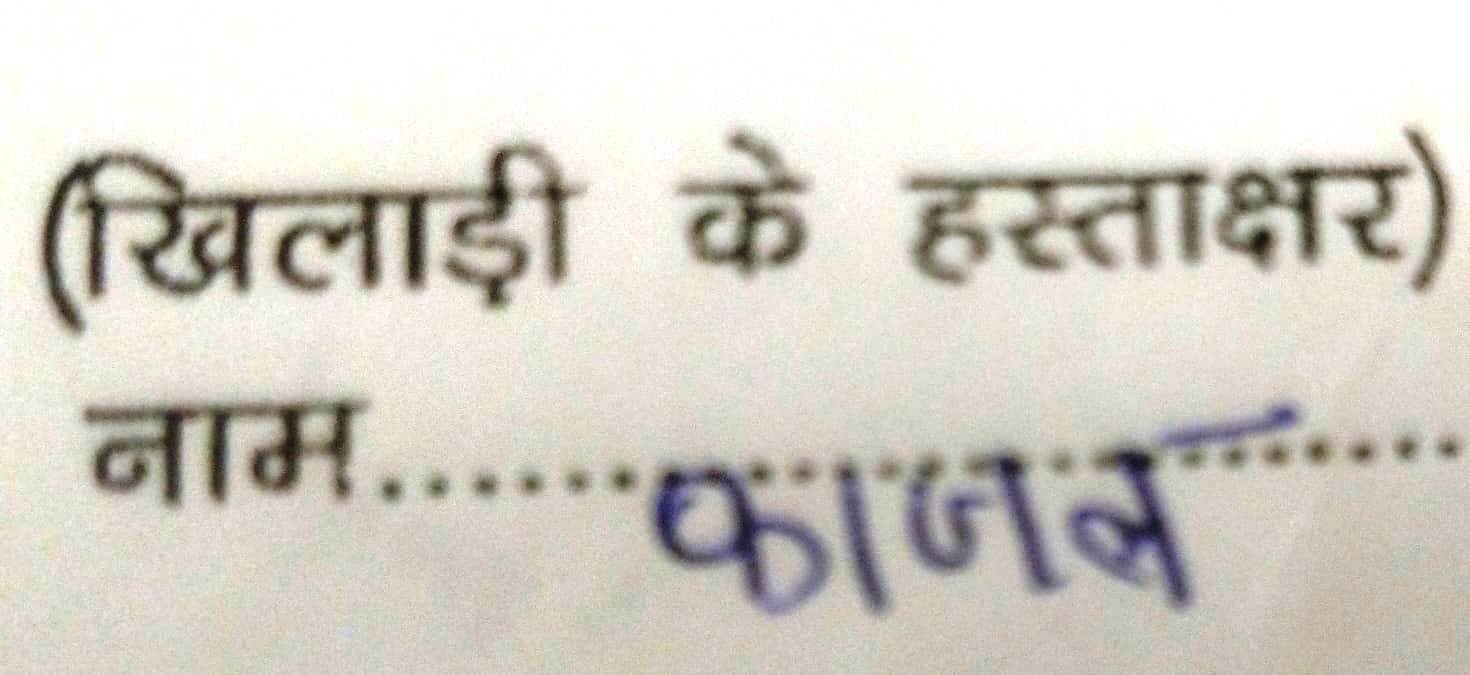 (खिलाड़ी के हस्ताक्षर)
नाम.......काजल.......